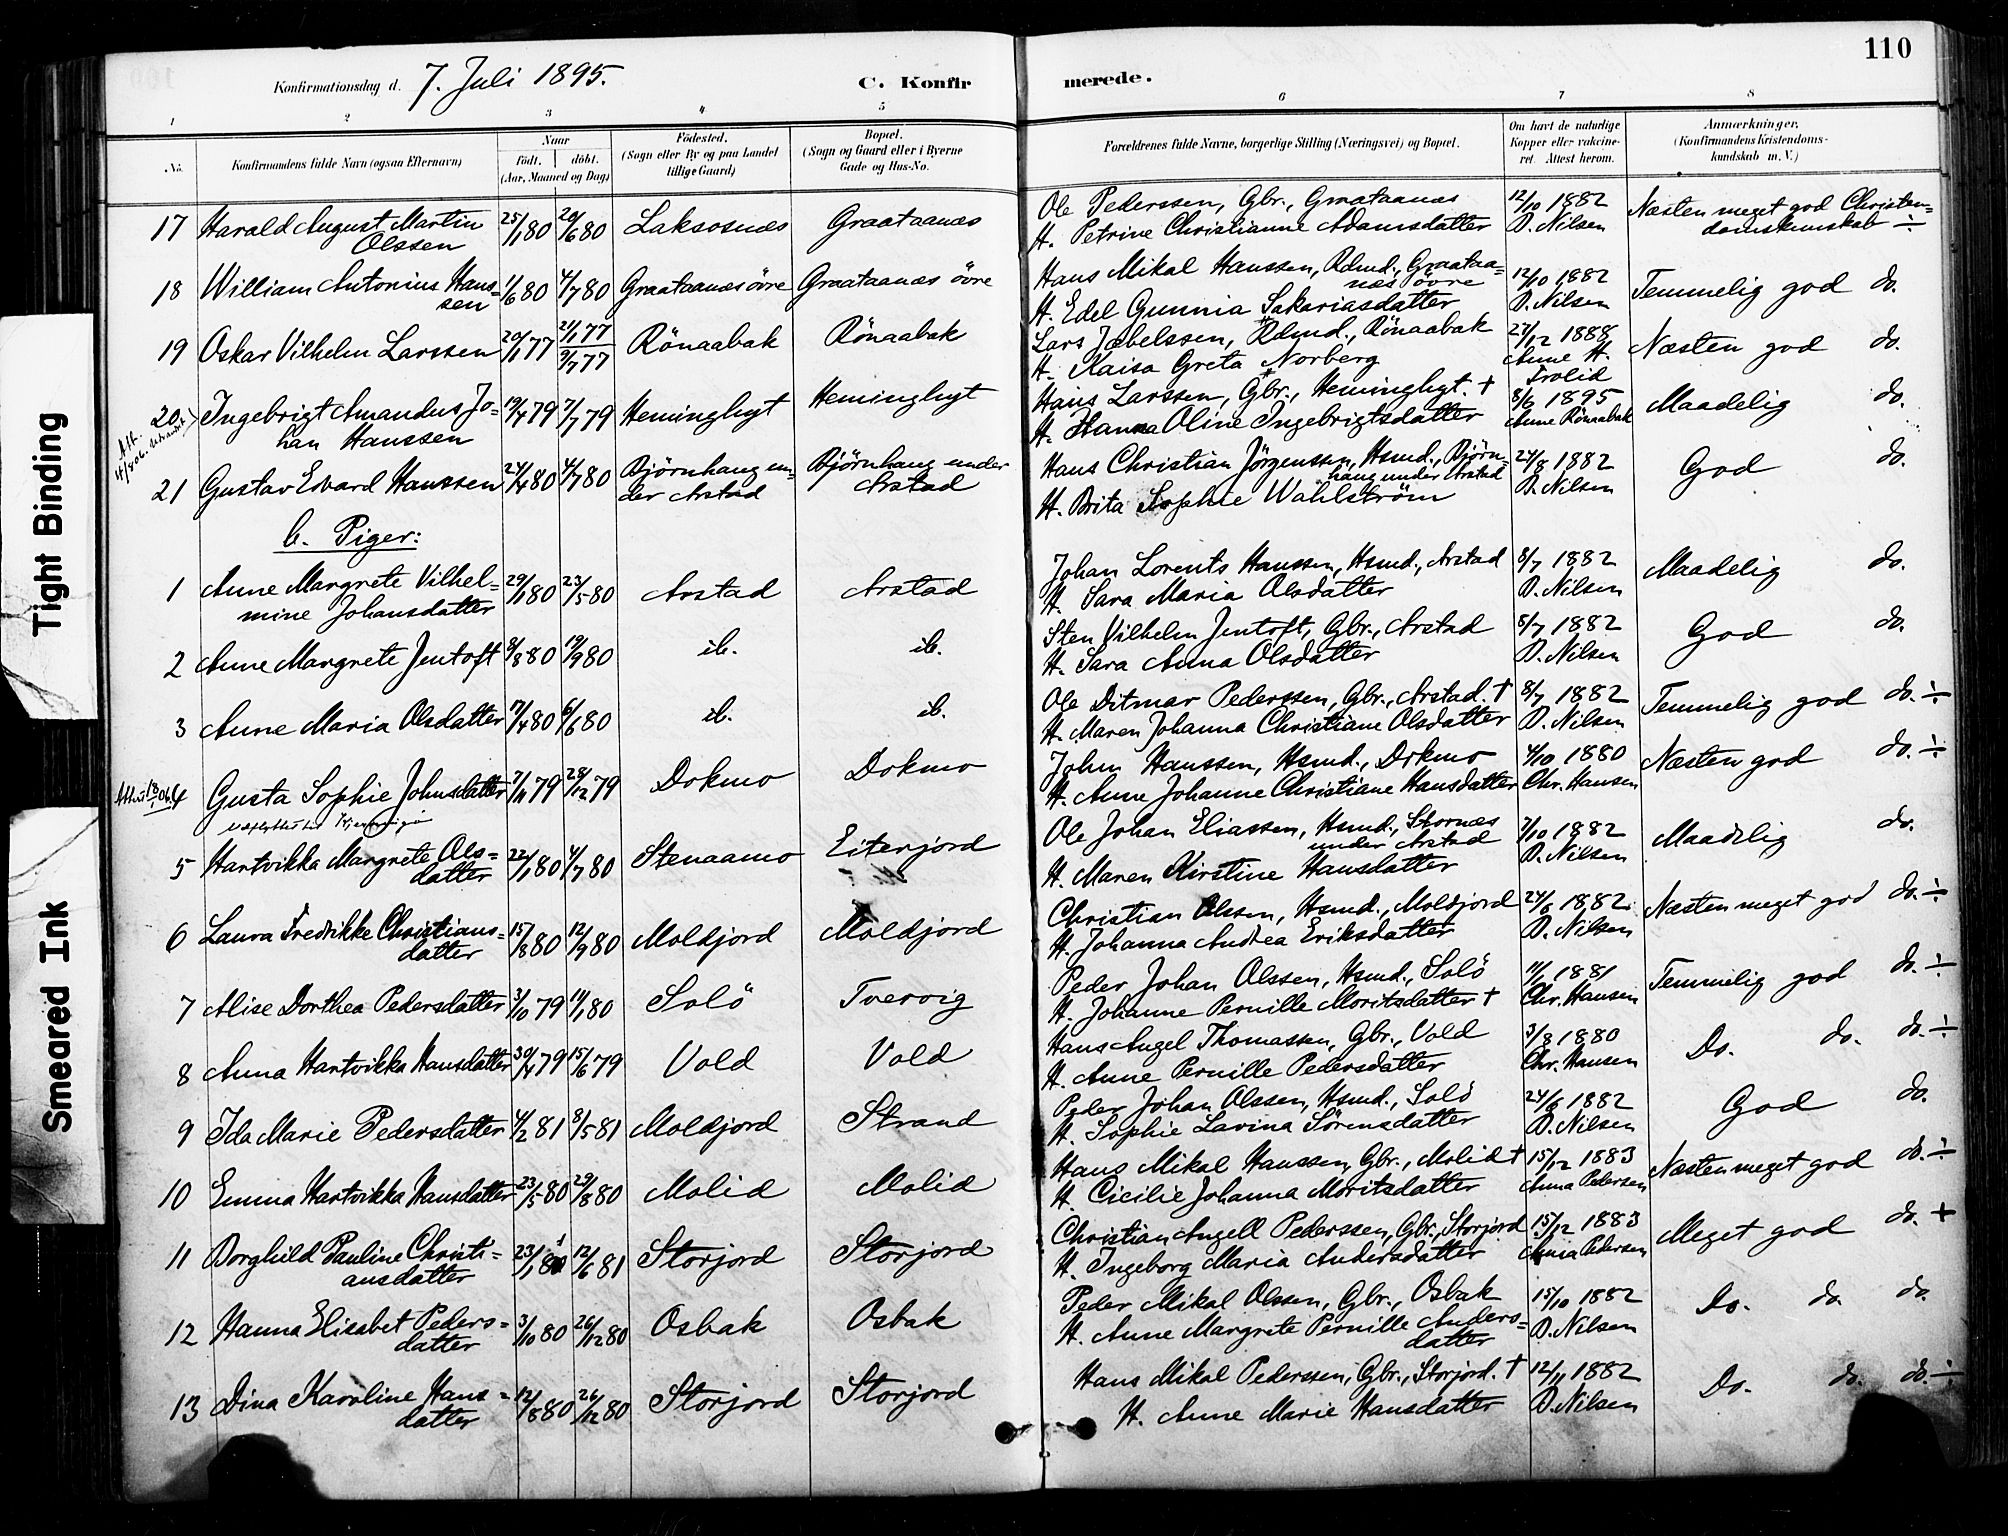 110
Konfirmationsdag d. 7. Juli 1895.
C. Konfirmerede.
1 2 3 4 5 6 7 8
No.
Konfirmandens fulde Navn (ogsaa Efternavn)
Naar
födt. döbt.
(Aar, Maaned og Dag)
Födested.
(Sogn eller By og paa Landet
tillige Gaard)
Bopæl.
(Sogn og Gaard eller i Byerne
Gade og Hus-No.
Forældrenes fulde Navne, borgerlige Stilling (Næringsvei) og Bopæl.
Om havt de naturlige
Kopper eller vakcine-
ret. Attest herom.
Anmærkninger.
(Konfirmandens Kristendoms-
kundskab m. V.)
17 Harald August Martin 25/1 80 20/6 80 Laksosnæs Graataanæs Ole Pederssen, Gbr., Graataanæs 12/10 1882 Næsten meget god Christen-
Olssen H. Petrine Christianne Adamsdatter D. Nilsen domskundskab ÷
18 William Antonius Hans- 1/6 80 4/7 80 Graataanæs övre Graataanæs övre Hans Mikal Hanssen, Rdmd., Graataa- 12/10 1882 Temmelig god do.
sen næs övre
H. Edel Gunnia Sakariasdatter D. Nilsen
19 Oskar Vilhelm Larssen 20/1 77 21/1 77 Rönaabak Rönaabak Lars Jæbelssen, Rdmd., Rönaabak 27/12 1888 Næsten god do.
9/7 77 H. Kaisa Greta Norberg Anne H.
Trolid
20 Ingebrigt Amandus Jo- 19/4 79 7/7 79 Heminghyt Heminghyt Hans Larssen, Gbr., Heminghyt. † 8/6 1895 Maadelig do.
han Hanssen H. Hanna Oline Ingebrigtsdatter Anne Rönaabak
21 Gustav Edvard Hanssen 24/4 80 4/7 80 Björnhaug un- Björnhaug under Hans Christian Jörgenssen, Hsmd., Björn- 24/8 1882 God do.
der Arstad Arstad haug under Arstad
H. Brita Sophie Wahlström D. Nilsen
b. Piger:
1 Anne Margrete Vilhel- 29/1 80 23/5 80 Arstad Arstad Johan Lorents Hanssen, Hsmd., Arstad 8/7 1882 Maadelig do.
mine Johansdatter H. Sara Maria Olsdatter D. Nilsen
2 Anne Margrete Jentoft 8/8 80 19/9 80 ib. ib. Sten Vilhelm Jentoft, Gbr., Arstad 8/7 1882 God do.
H. Sara Anna Olsdatter D. Nilsen
3 Anne Maria Olsdatter 17/4 80 6/6 80 ib. ib. Ole Ditmar Pederssen, Gbr., Arstad. † 8/7 1882 Temmelig god do. ÷
H. Maren Johanna Christiane Olsdatter D. Nilsen
4 Gusta Sophie Johnsdatter 7/11 79 28/12 79 Dokmo Dokmo John Hanssen, Hsmd., Dokmo 4/10 1880 Næsten god do. ÷
H. Anne Johanne Christiane Hansdatter Chr. Hansen
5 Hartvikka Margrete Ols- 22/1 80 4/7 80 Stenaamo Eiterjord Ole Johan Eliassen, Hsmd., Stornæs 7/10 1882 Maadelig do.
datter under Arstad
H. Maren Kirstine Hansdatter D. Nilsen
6 Laura Fredrikke Christians- 15/8 80 12/9 80 Moldjord Moldjord Christian Olssen, Hsmd., Moldjord 24/6 1882 Næsten meget god do. ÷
datter H. Johanna Andrea Eriksdatter D. Nilsen
7 Alise Dorthea Pedersdatter 3/10 79 11/1 80 Solö Tvervig Peder Johan Olssen, Hsmd., Solö 1881 Temmelig god do. ÷
H. Johanne Pernille Moritsdatter † Chr. Hansen
8 Anna Hartvikka Hansdatter 30/4 79 15/6 79 Vold Vold Hans Angel Thomassen, Gbr., Vold 3/8 1880 Do. do. do. ÷
H. Anne Pernille Pedersdatter Chr. Hansen
9 Ida Marie Pedersdatter 4/2 81 8/5 81 Moldjord Strand Peder Johan Olssen, Hsmd., Solö 24/6 1882 God do.
H. Sophie Lavina Sörensdatter D. Nilsen
10 Emma Hartvikka Hansdatter 23/5 80 29/8 80 Molid Molid Hans Mikal Hanssen, Gbr., Molid † 15/12 1883 Næsten meget god do. ÷
H. Cicilie Johanna Moritsdatter Anna Pedersen
11 Borghild Pauline Christi- 23/1 81 12/6 81 Storjord Storjord Christian Angell Pederssen, Gbr., Storjord 15/12 1883 Meget god do. +
ansdatter H. Ingeborg Maria Andersdatter Anna Pedersen
12 Hanna Elisabet Peders- 3/10 80 26/12 80 Osbak Osbak Peder Mikal Olssen, Gbr., Osbak 15/10 1882 Do. do. do.
datter H. Anne Margrete Pernille Anders- D. Nilsen
datter
13 Dina Karoline Hans- 12/8 80 26/12 80 Storjord Storjord Hans Mikal Pederssen, Gbr., Storjord. † 12/11 1882 Do. do. do. ÷
datter H. Anne Marie Hansdatter D. Nilsen
Tight Binding
Smeared Ink